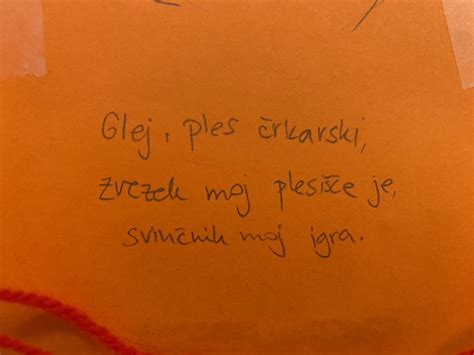 Glej, ples črkarski,
zvezek moj plesišče je,
svinčnik moj igra.